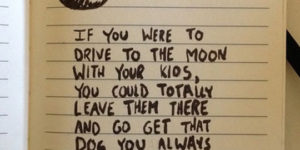 IF YOU WERE TO
DRIVE TO THE MOON
WITH YOUR KIDS,
YOU COULD TOTALLY
LEAVE THEM THERE
AND GO GET THAT
DOG YOU ALWAYS